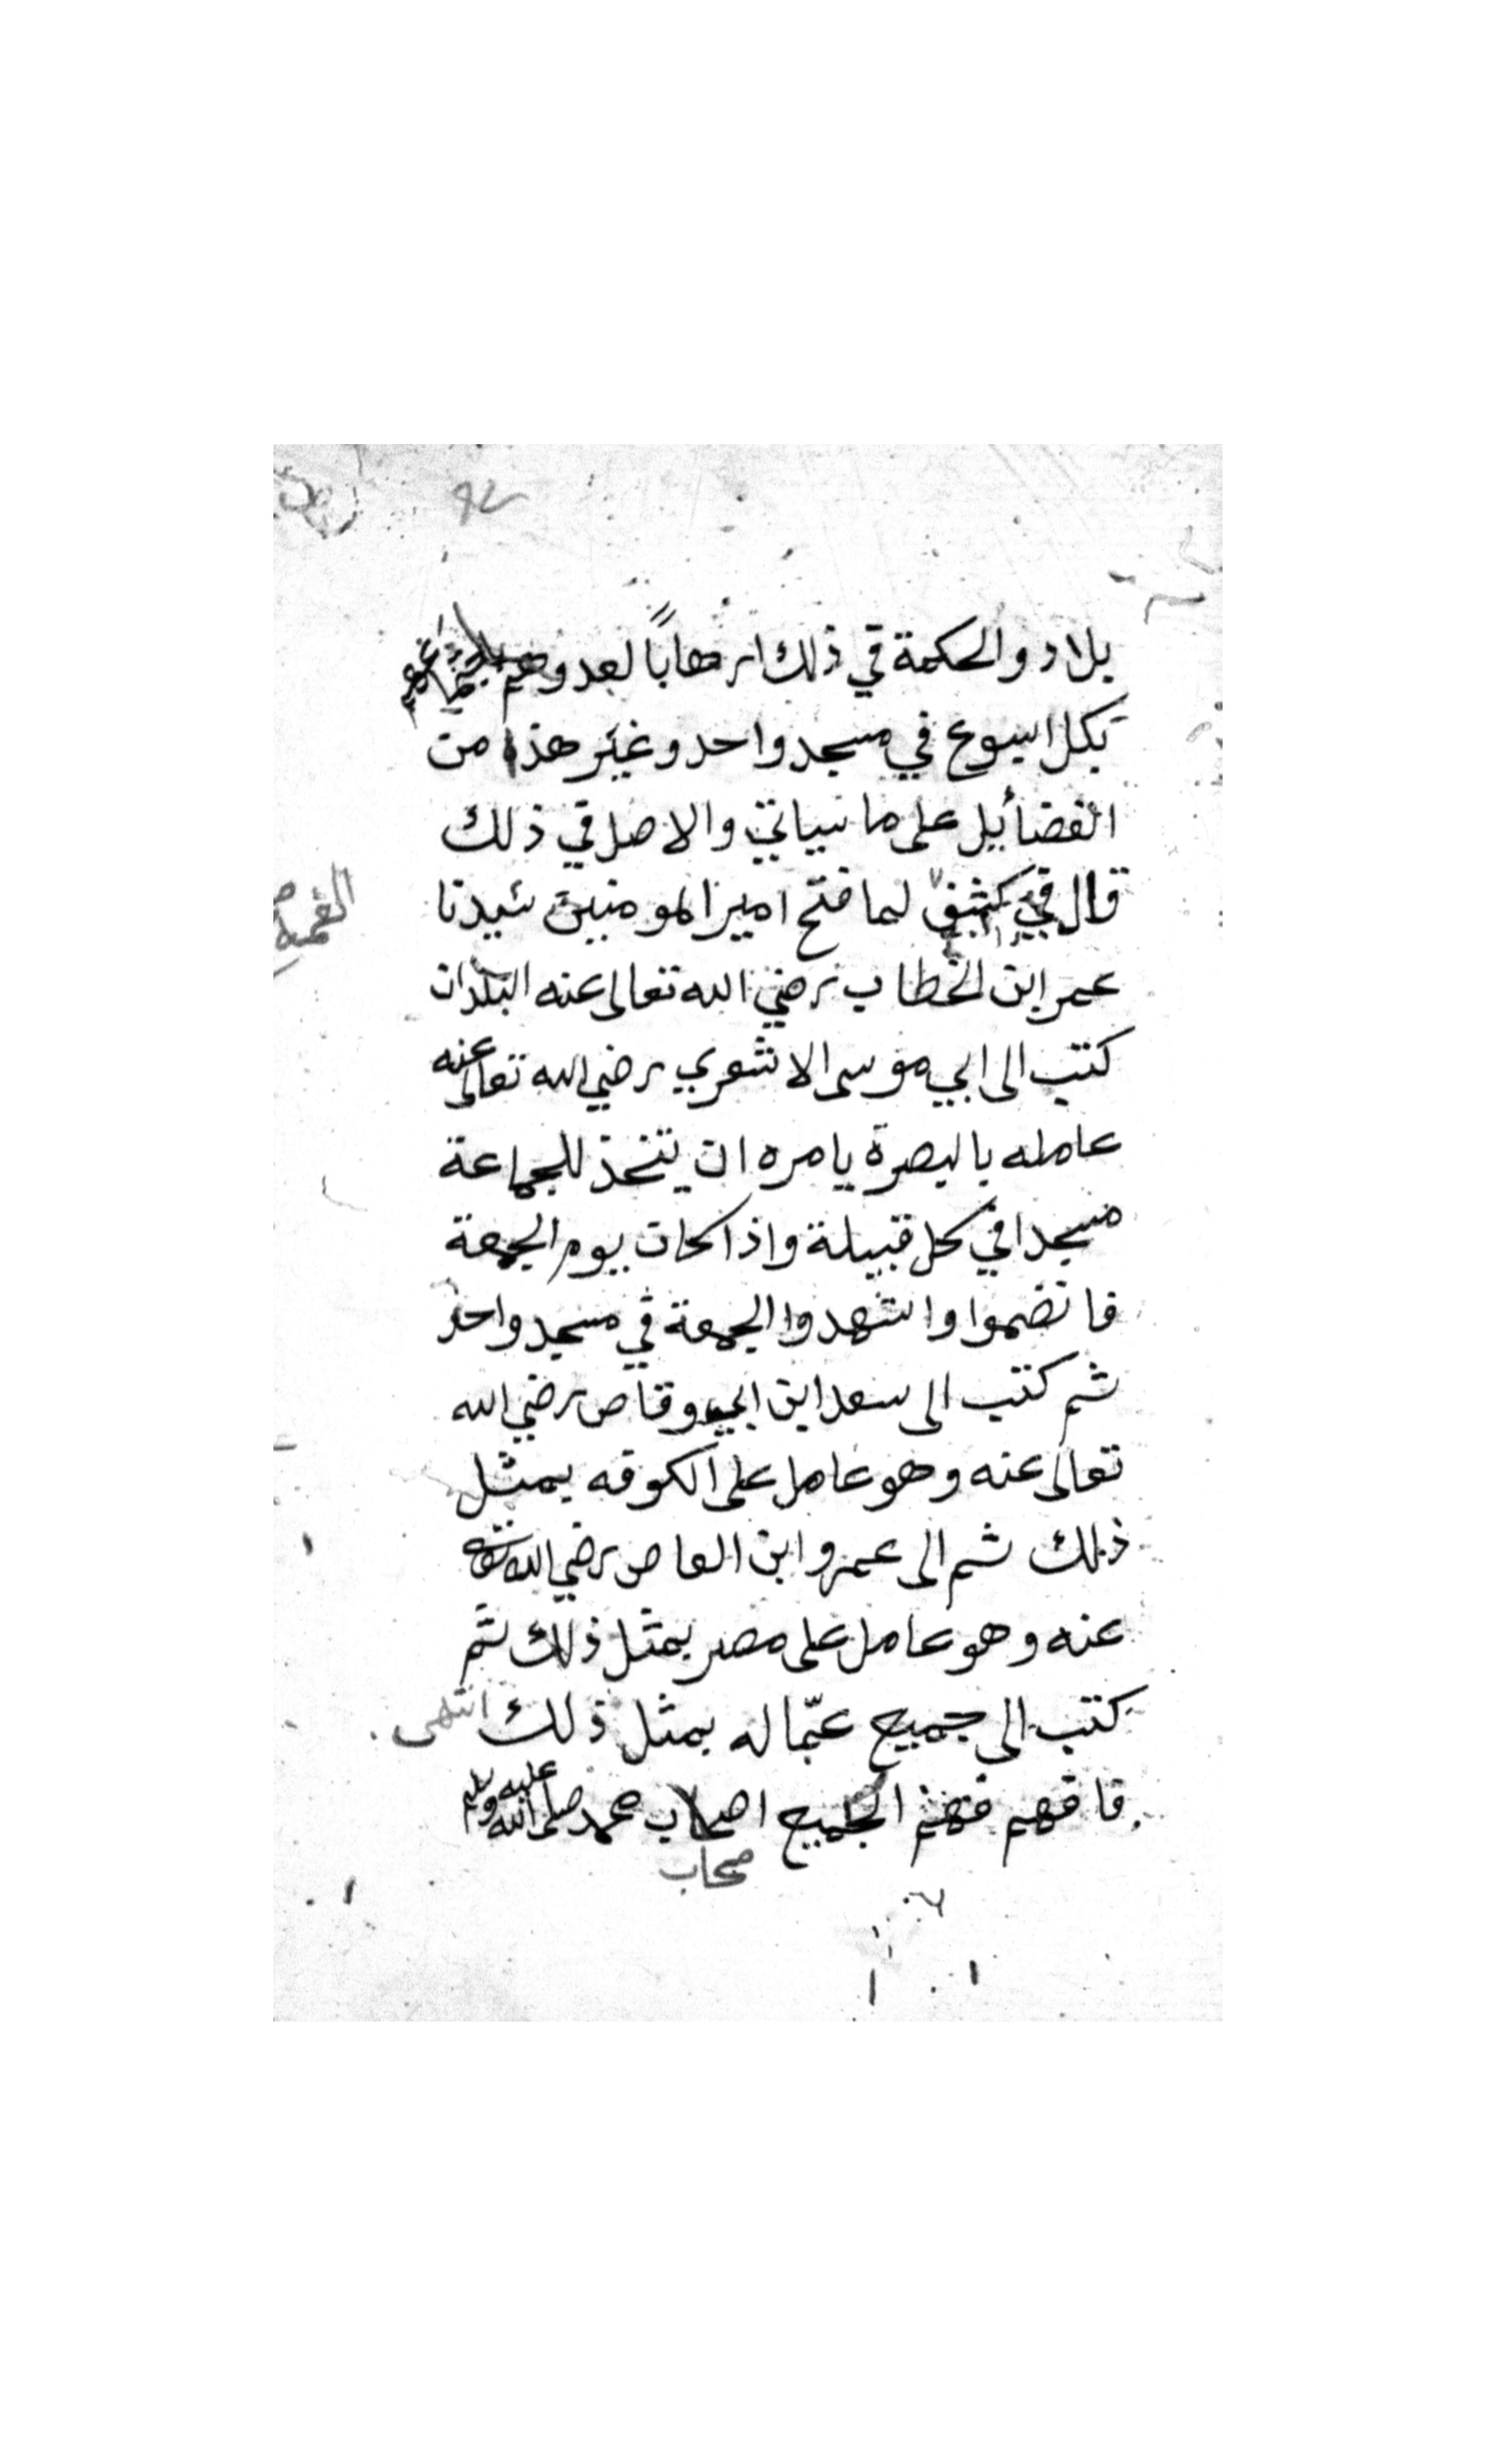 بلاد والحكمة في ذلك ارهابًا لعدوهم باجتماعهم
بكل اسبوع في مسجد واحد وغير هذا من
الفضأيل على ما سياتي والاصل في ذلك
قال في كشف لما فتح امير المومنين سيدنا
عمر ابن الخطاب رضي الله تعالى عنه البلدان
كتب الى ابي موسى الاشعري رضي الله تعالى عنه
عامله بالبصرة يامره ان يتخذ للجماعة
مسجدا في كل قبيلة واذا كان يوم الجمعة
فانضموا واشهدوا الجمعة في مسجد واحد
ثم كتب الى سعد ابن ابي وقاص رضي الله
تعالى عنه وهو عامل على الكوفه بمثل
ذلك ثم الى عمرو ابن العاص رضي الله تعالى
عنه وهو عامل على مصر بمثل ذلك ثم
كتب الى جميع عمّاله بمثل ذلك انتهى
فافهم فهم الجميع اصحاب محمد صلى الله عليه وسلم
صحاب